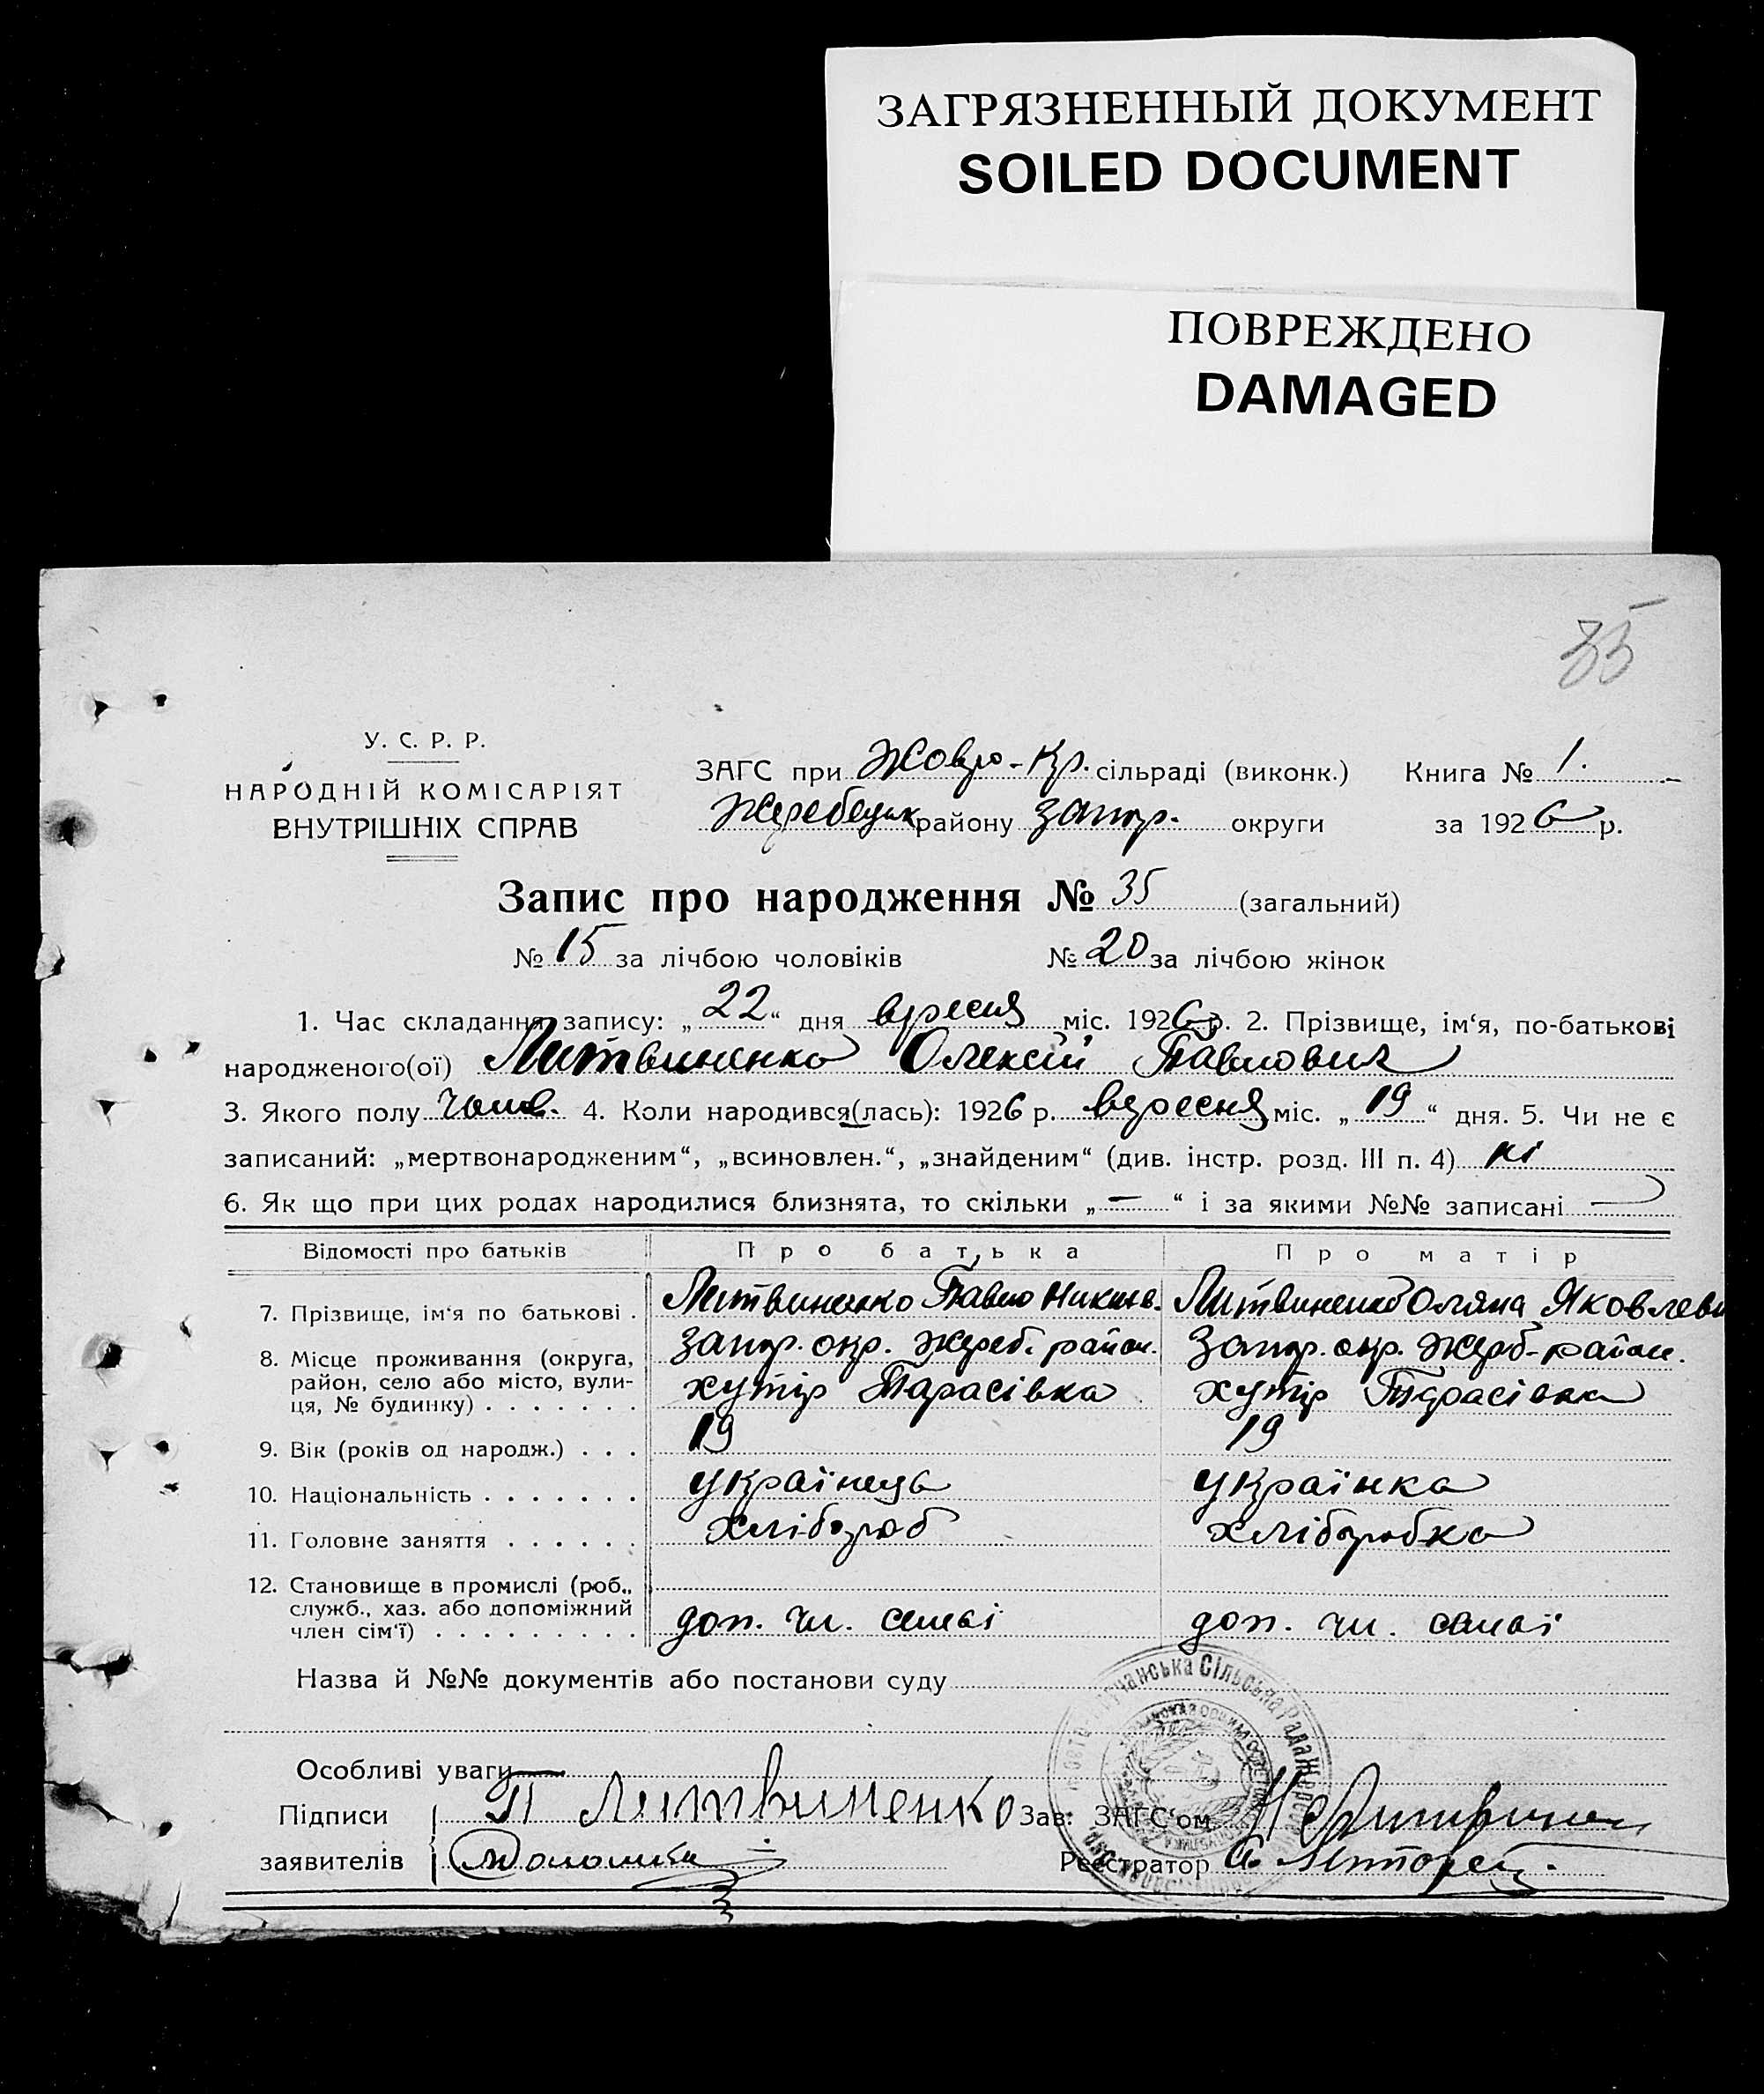 ЗАГРЯЗНЕННЫЙ ДОКУМЕНТ
SOILED DOCUMENT
ПОВРЕЖДЕНО
DAMAGED
35
У. С. Р. Р.
НАРОДНІЙ КОМІСАРІЯТ
ВНУТРІШНІХ СПРАВ
ЗАГС при Жовто-Кр. сільраді (виконк.) Книга № 1.
Жеребецьк району Запор. округи за 1926 р.
Запис про народження № 35 (загальний)
№ 15 за лічбою чоловіків № 20 за лічбою жінок
1. Час складання запису: „22“ дня вересня міс. 1926 р. 2. Прізвище, ім‘я, по-батькові
народженого(ої) Литвиненко Олексій Павлович
3. Якого полу чолов. 4. Коли народився(лась): 1926 р. вересня міс. „19“ дня. 5. Чи не є
записаний: „мертвонародженим“, „всиновлен.“, „знайденим“ (див. інстр. розд. III п. 4) ні
6. Як що при цих родах народилися близнята, то скільки „—“ і за якими №№ записані —
Відомості про батьків Про батька Про матір
7. Прізвище, ім‘я по батькові . Литвиненко Павло Никиф. Литвиненко Оляна Яковлеви
8. Місце проживання (округа, район, село або місто, вули- Запор. окр. Жереб. район. Запор. окр. Жереб. район.
ця, № будинку) . . . . . . . хутір Тарасівка хутір Тарасівка
9. Вік (років од народж.) . . . 19 19
10. Національність . . . . . . . українець українка
11. Головне заняття . . . . . . хлібороб хліборобка
12. Становище в промислі (роб.,
служб., хаз. або допоміжний
член сім‘ї) . . . . . . . . . доп. чл. семьі доп. чл. семьї
Назва й №№ документів або постанови суду
Особливі уваги
Підписи П Литвиненко Зав. ЗАГС‘ом
заявителів Реєстратор
Сільська Рада